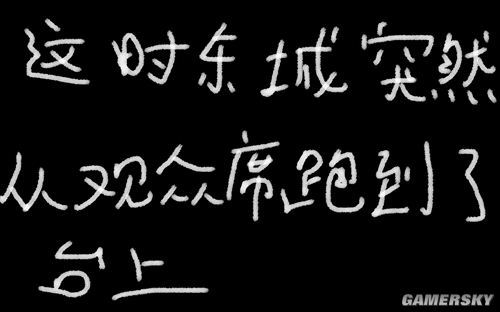 这时东城突然
从观众席跑到了
台上
GAMERSKY